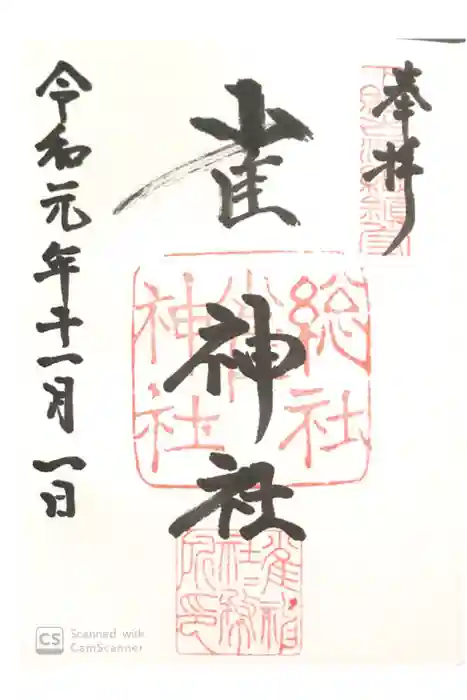 奉拝
雀
神
社
総社
雀
神社
令和元年十一月一日
CS Scanned with
CamScanner